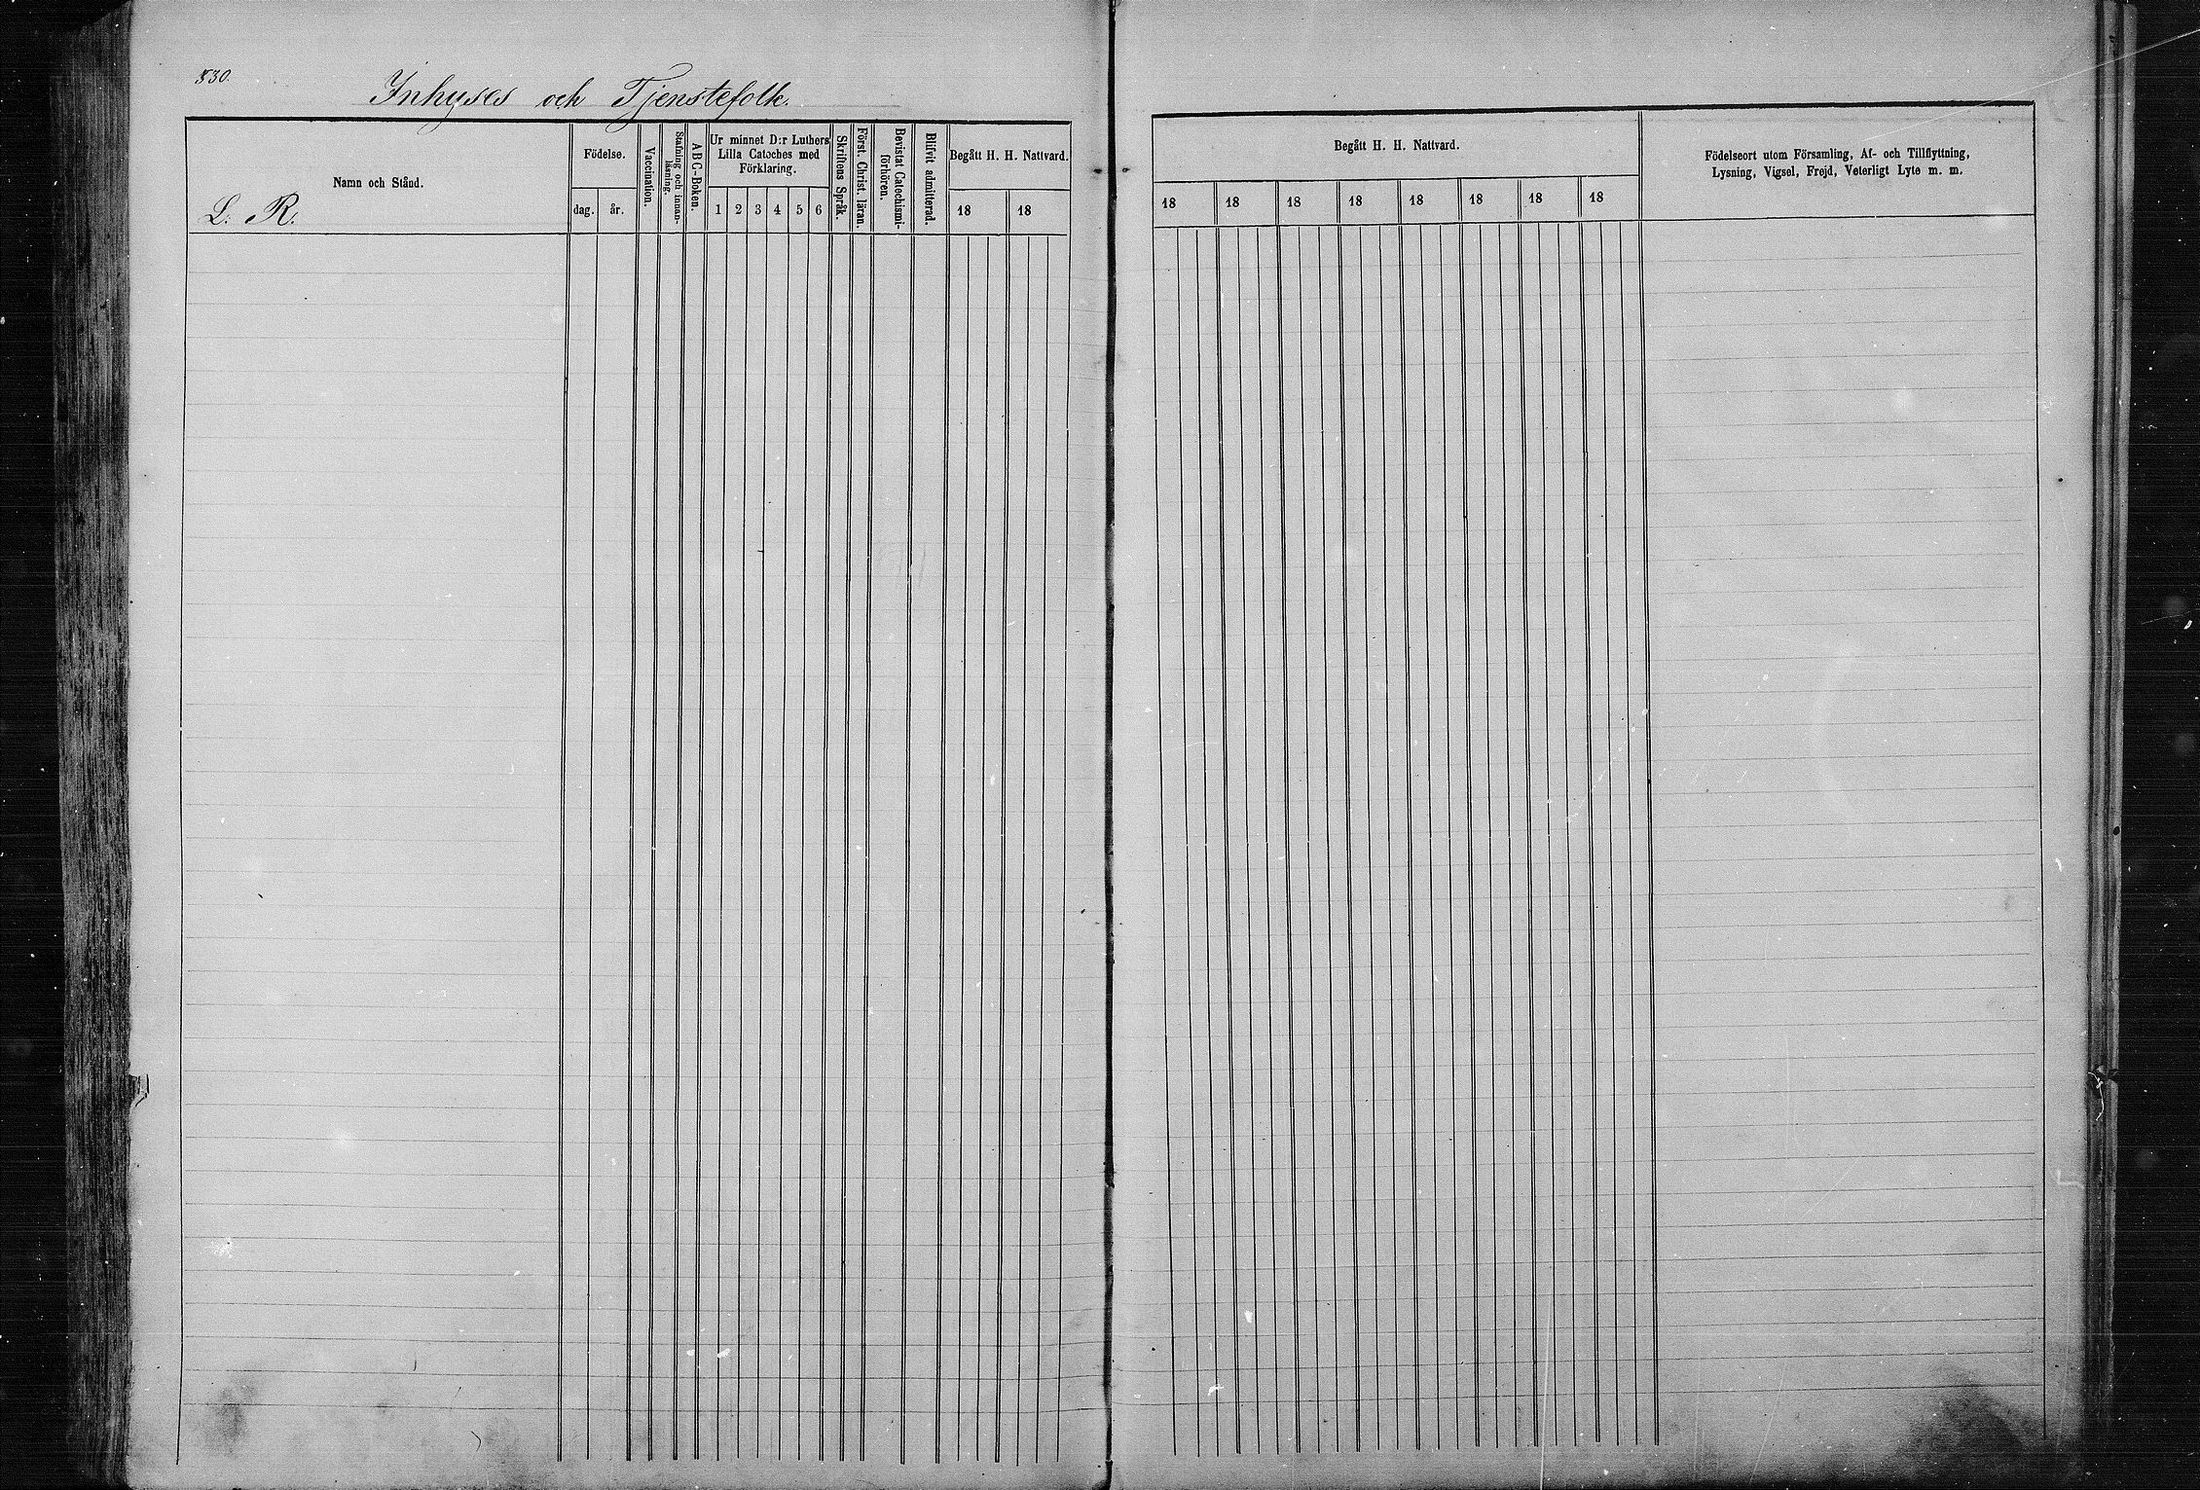 830.
Inhyses och Tjenstefolk.
Namn och Stånd.
L. R.
Födelse.
dag. år.
Vaccination.
Stafning och innan-
läsning.
ABC-Boken.
Ur minnet D:r Luthers
Lilla Catoches med
Förklaring.
1 2 3 4 5 6
Skriftens Språk.
Först. Christ. läran.
Bevistat Catechismi-
förhören.
Blifvit admitterad.
Begått H. H. Nattvard.
18 18
Begått H. H. Nattvard.
18 18 18 18 18 18 18 18
Födelseort utom Församling, Af- och Tillflyttning,
Lysning, Vigsel, Frejd, Veterligt Lyte m. m.